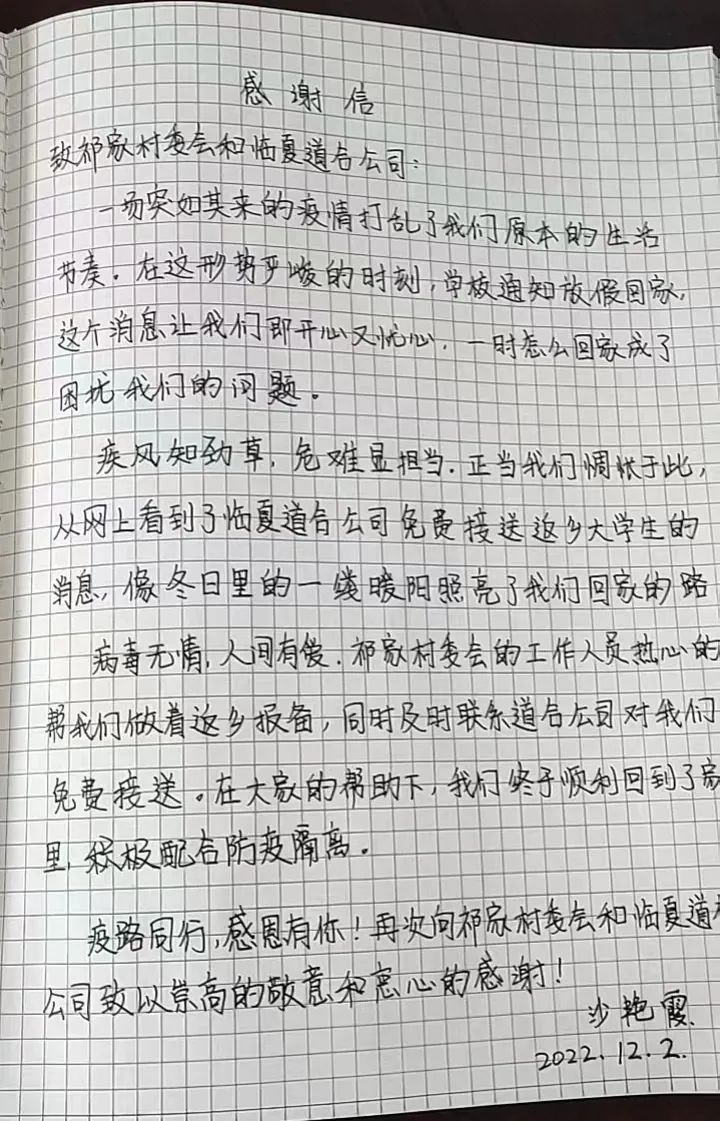 感谢信
致祁家村委会和临夏道合公司：
一场突如其来的疫情打乱了我们原本的生活
节奏。在这形势严峻的时刻，学校通知放假回家，
这个消息让我们即开心又忧心，一时怎么回家成了
困扰我们的问题。
疾风知劲草，危难显担当．正当我们惆怅于此，
从网上看到了临夏道合公司免费接送返乡大学生的
消息，像冬日里的一缕暖阳照亮了我们回家的路
病毒无情，人间有爱．祁家村委会的工作人员热心的
帮我们做着返乡报备，同时及时联系道合公司对我们
免费接送。在大家的帮助下，我们终于顺利回到了家
里，积极配合防疫隔离。
疫路同行，感恩有你！再次向祁家村委会和临夏道
公司致以崇高的敬意和衷心的感谢！
沙艳霞
2022.12.2.